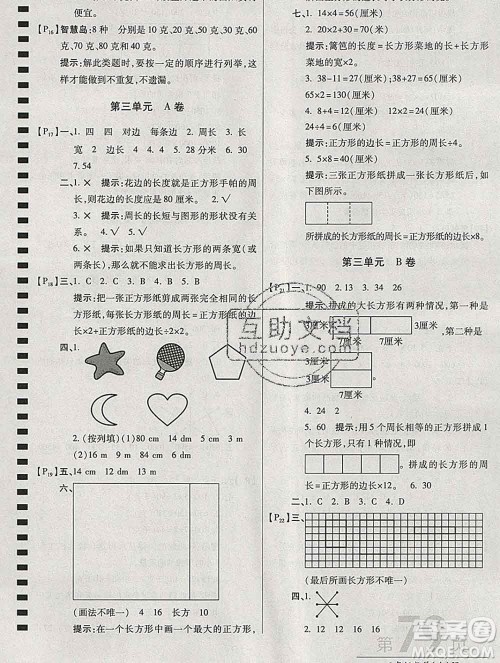 便宜。
【P16】智慧岛:5种 分别是10克、20克、30克、50克、60克、70克、80克、90克、100克、110克。
提示:解此类题时,要按一定的顺序进行列举,这样才能做到不重复、不遗漏。
第三单元 A卷
【P17】一、1. 四 四 对边 每条边 2. 周长 3. 长 宽 2 边长 4. 周长 5. 20 6. 30
7. 54
二、1. × 提示:花边的长度就是正方形手帕的周长,则花边的长度应是80厘米。 2. √
3. × 提示:周长的长短与图形的形状没有关系。 4. √
5. × 提示:如果只知道长方形的两条宽(或两条长),那么不能确定它的周长。
【P18】三、1. C 2. B 3. C 4. C 5. C
提示:把一张正方形纸剪成两个同样的长方形纸,每张长方形纸的周长=正方形纸的边长×2+正方形纸的边长÷2×2。
四、1.
2. (按列填)(1)80 cm 94 cm
(2)16 m 90 dm 98 cm
【P19】五、14 cm 12 dm 13 m
六、
(画法不唯一) 4 16 长方 10
提示:在长方形中画一个最大的正方形,
七、1. 14×4=56(厘米)
2.
提示:篱笆的长度=长方形菜地的长+长方形菜地的宽×2。
3. 38-11=27(厘米) 38+27=65(厘米)
65×2=130(厘米)
4. 8+4=12(厘米) 12×2=24(厘米)
24÷4=6(厘米)
5. 5×8=40(厘米)
提示:三张正方形纸拼成一张长方形纸后,如下图所示。
所拼成的长方形纸的周长=正方形纸的边长×8。
第三单元 B卷
【P21】一、1. 90 2. 13 3. 34 26
提示:拼成的大长方形有两种情况,第一种是
3厘米
7厘米
,第二种是
3厘米
7厘米
4. 24 2 5. 60 提示:用5个周长相等的正方形拼成1个长方形,这个长方形如下:
拼成的长方形的周长=边长×12。 6. 30
二、1. C 2. B 3. C 4. D
【P22】三、
(最后所画长方形不唯一)
四、1.
2. 12 12 16 16
互助文档
hdzuoye.com
答案圈
MXQE.COM